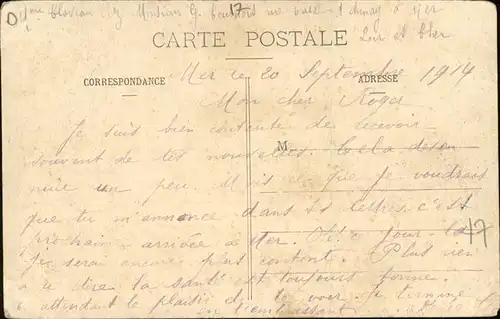 Mme Claveau chez Monsieur G. rue à Mer
17
CARTE POSTALE
Loir et Cher
CORRESPONDANCE
ADRESSE
Mer le 20 Septembre 1914
Mon cher Roger
Je suis bien contente de recevoir
M
souvent de tes nouvelles. Cela désen
nuie un peu. Mais ce que je voudrais
que tu m'annonce dans ts lettres c'est
prochaine arrivée à Mer. Ce jour là
17
je serai encore plus content. Plus rien
a te dire la santé est toujours bonne.
attendant le plaisir de te voir. Je termine
en t'embrassant